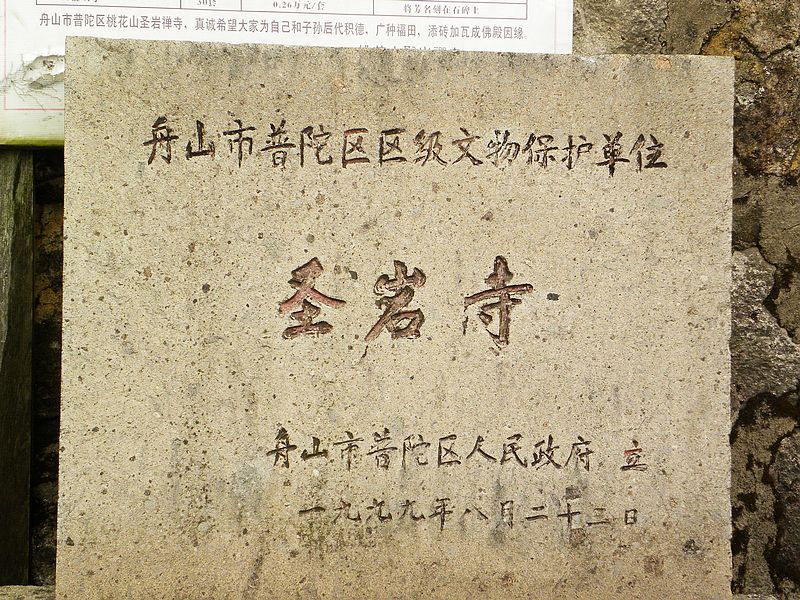 30套
0.26万元/套
将芳名刻在石碑上
舟山市普陀区桃花山圣岩禅寺、真诚希望大家为自己和子孙后代积德、广种福田、添砖加瓦成佛殿因缘。
舟山市普陀区区级文物保护单位
圣岩寺
舟山市普陀区人民政府 立
一九九九年八月二十三日